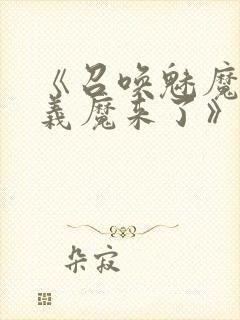 《召唤魅魔
義魔来了》
朵寂